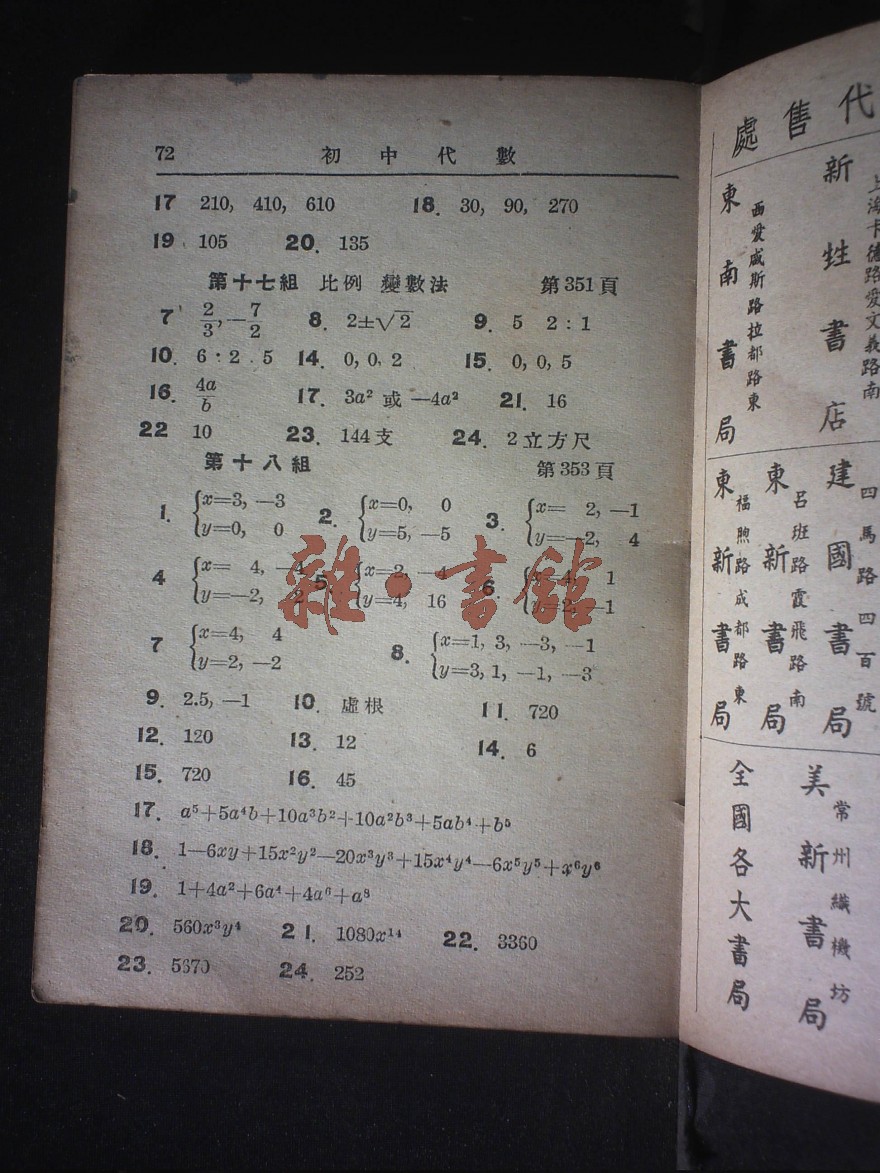 72 初中代數
17 210, 410, 610 18. 30, 90, 270
19 105 20. 135
第十七組 比例 變數法 第351頁
7 2/3, —7/2 8. 2±√2 9. 5 2:1
10. 6:2.5 14. 0, 0, 2 15. 0, 0, 5
16. 4a/b 17. 3a² 或 —4a² 21. 16
22 10 23. 144支 24. 2立方尺
第十八組 第353頁
1. {x=3, —3 2. {x=0, 0 3. {x= 2, —1
y=0, 0 y=5, —5 y=—2, 4
4 {x= 4, —4 5. {x=2, —4 6. {x=4, 1
y=—2, 2 y=4, 16 y=2, —1
雜·書館
7 {x=4, 4 8. {x=1, 3, —3, —1
y=2, —2 y=3, 1, —1, —3
9. 2.5, —1 10. 虛根 11. 720
12. 120 13. 12 14. 6
15. 720 16. 45
17. a⁵+5a⁴b+10a³b²+10a²b³+5ab⁴+b⁵
18. 1—6xy+15x²y²—20x³y³+15x⁴y⁴—6x⁵y⁵+x⁶y⁶
19. 1+4a²+6a⁴+4a⁶+a⁸
20. 560x³y⁴ 21. 1080x¹⁴ 22. 3360
23. 5670 24. 252
代售處
上海卡德路愛文義路南
新甡書店
西愛咸斯路拉都路東
東南書局
四馬路四百號
建國書局
呂班路霞飛路南
東新書局
福煦路成都路東
東新書局
常州織機坊
美新書局
全國各大書局